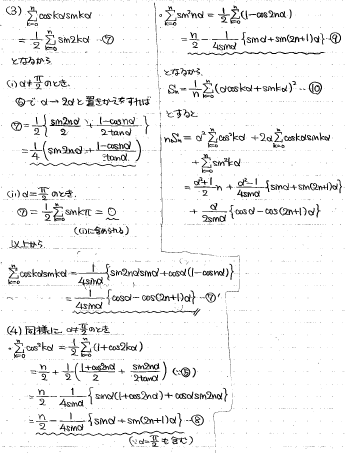 (3) Σ[k=0→n] coskα sinkα
= 1/2 Σ[k=0→n] sin2kα …⑦
となるから
(i) α≠π/2 のとき.
⑥で α→2α と置きかえをすれば
⑦ = 1/2 { sin2nα/2 + (1-cos2nα)/2tanα }
= 1/4 ( sin2nα + (1-cos2nα)/tanα )
(ii) α=π/2 のとき.
⑦ = 1/2 Σ[k=0→n] sinkπ = 0
((i)に含められる)
以上から
Σ[k=0→n] coskα sinkα = 1/4sinα { sin2nα sinα + cosα(1-cos2nα) }
= 1/4sinα { cosα - cos(2n+1)α } …⑦'
(4) 同様に α≠π/2 のとき
・Σ[k=0→n] cos²kα = 1/2 Σ[k=0→n] (1+cos2kα)
= n/2 + 1/2 ( (1+cos2nα)/2 + sin2nα/2tanα ) (∵⑤)
= n/2 - 1/4sinα { sinα(1+cos2nα) + cosα sin2nα }
= n/2 - 1/4sinα { sinα + sin(2n+1)α } …⑧
(∵α=π/2 も含む)
・Σ[k=0→n] sin²kα = 1/2 Σ[k=0→n] (1-cos2kα)
= n/2 - 1/4sinα { sinα + sin(2n+1)α } …⑨
となるから
Sn = 1/n Σ[k=0→n] (αcoskα + sinkα)² …⑩
とすると
nSn = α² Σ[k=0→n] cos²kα + 2α Σ[k=0→n] coskα sinkα
+ Σ[k=0→n] sin²kα
= (α²+1)/2 n + (α²-1)/4sinα { sinα + sin(2n+1)α }
+ α/2sinα { cosα - cos(2n+1)α }